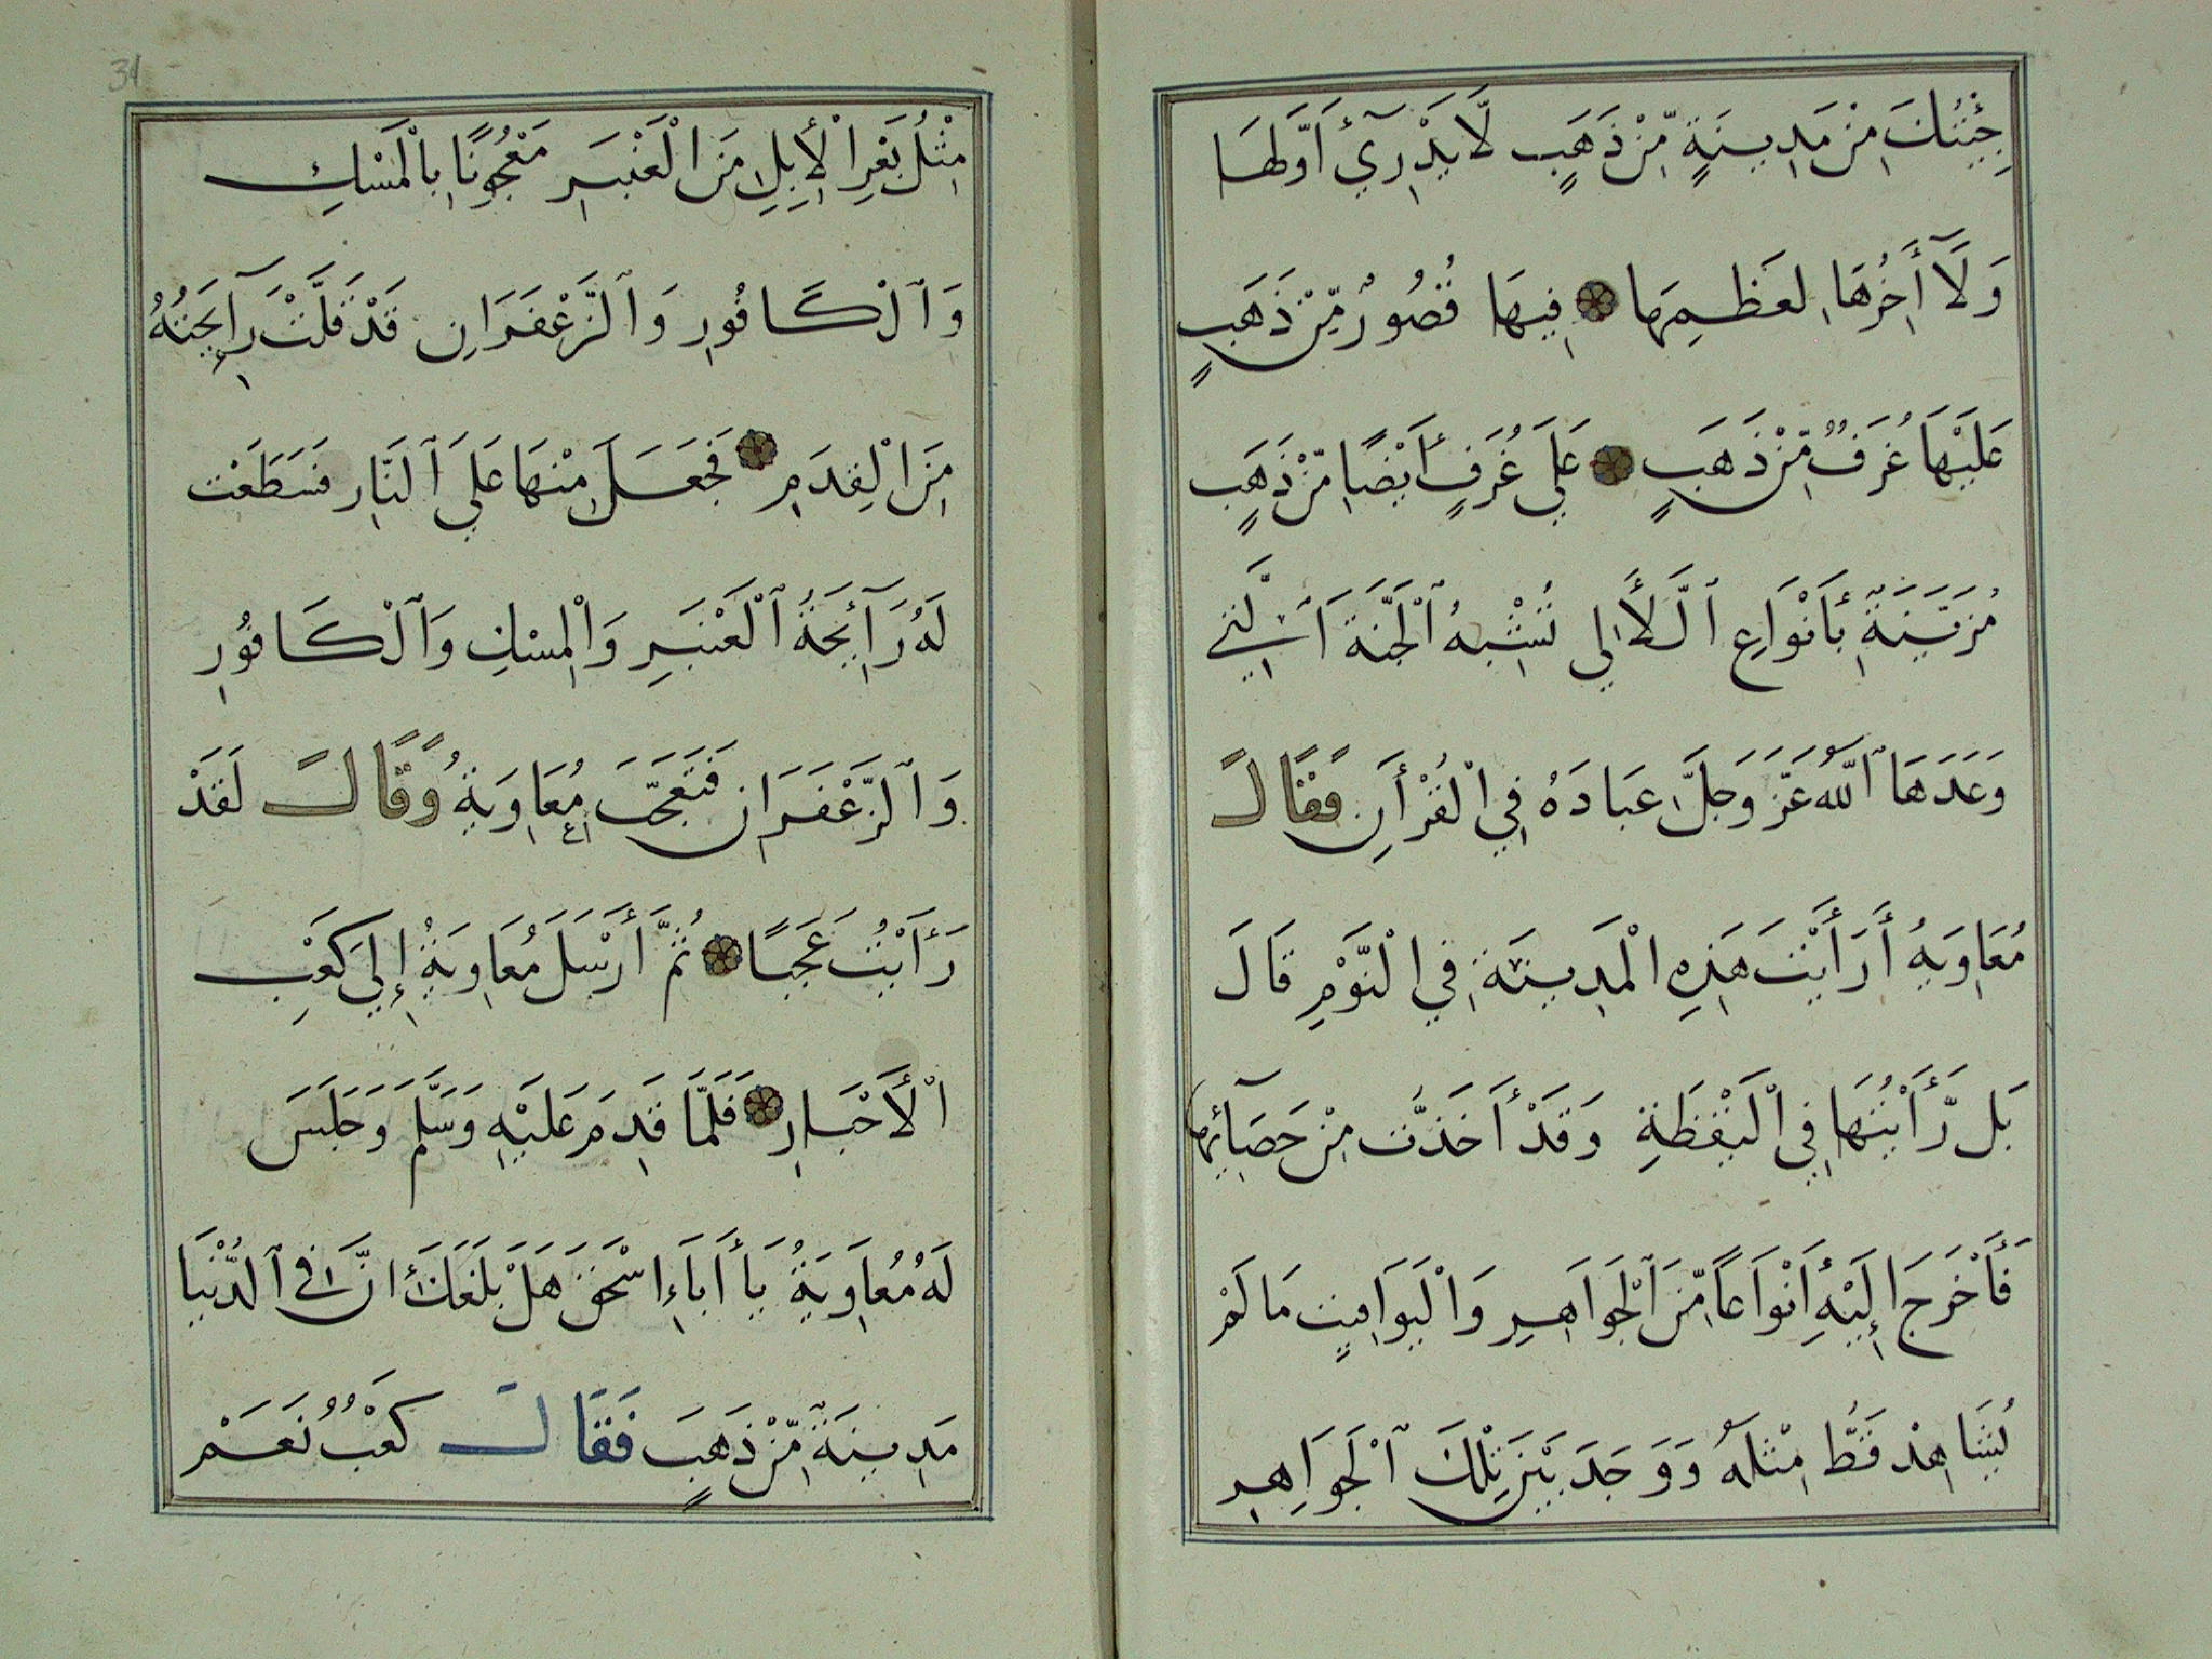 جِئْتُكَ مِنْ مَدِينَةٍ مِّنْ ذَهَبٍ لَا يَدْرِيٓ أَوَّلهَا
وَلَآ أٰخِرُهَا لِعَظِمِهَا فِيهَا قُصُورٌ مِّنْ ذَهَبٍ
عَلَيْهَا غُرَفٌ مِّنْ ذَهَبٍ عَلَي غُرَفٍ أَيْضًا مِّنْ ذَهَبٍ
مُزَيَّنَةٌ بِأَنْوَاعِ ٱلَّلأَٰلي تُشْبِهُ ٱلْجَنَّةَ ٱلَّتِي
وَعَدَهَا ٱللّٰهُ عَزَّ وَجَلَّ عِبَادَهُ فِي الْقُرْأٰنِ فَقَالَ
مُعَاوِيَةُ أَرَأَيْتَ هَذِهِ الْمَدِينَةِ فِي الْنَّوْمِ قَالَ
بَل رَّأَيْتُهَا فِي الْيَقْظَةِ وَقَدْ أَخَذْتُ مِنْ حَصَآئِهَا
فَأَخْرَجَ إِلَيْهِ أَنْوَاعًا مِّنَ ٱلْجَوَاهِرِ وَالْيَوَاقِيتِ مَا لَمْ
يُشَاهِدْ قَطُّ مِثْلَهُ وَوَجَدَ بَيْنَ تِلْكَ ٱلْجَوَاهِرِ
31
مِثْلُ بَعْرِ الْأِبِلِ مِنَ الْعَنْبَرِ مَعْجُونًا بِالْمَسْكِ
وَٱلْكَافُورِ وَٱلزَّعْفَرَانِ قَدْ قَلَّتْ رَآئِحَتُهُ
مِنَ الْقِدَمِ فَجَعَلَ مِنْهَا عَلَي ٱلنَّارِ فَسَطَعَت
لَهُ رَآئِحَةُ ٱلْعَنْبَرِ وَالْمِسْكِ وَٱلْكَافُورِ
وَٱلزَّعْفَرَانِ فَتَعَجَّبَ مُعَاوِيَةُ وَقَالَ لَقَدْ
رَأَيْتُ عَجَبًا ثُمَّ أَرْسَلَ مُعَاوِيَةُ إِلَي كَعْبِ
الْأَحْبَارِ فَلَمَّا قَدِمَ عَلَيْهِ وَسَلَّمَ وَجَلَسَ
لَهُ مُعَاوِيَةُ يَا أَبَاءِ اسْحٰقَ هَلْ بَلَغَكَ أَنَّ فِي ٱلدُّنْيَا
مَدِينَةٌ مِّنْ ذَهَبٍ فَقَالَ كَعْبٌ نَعَمْ